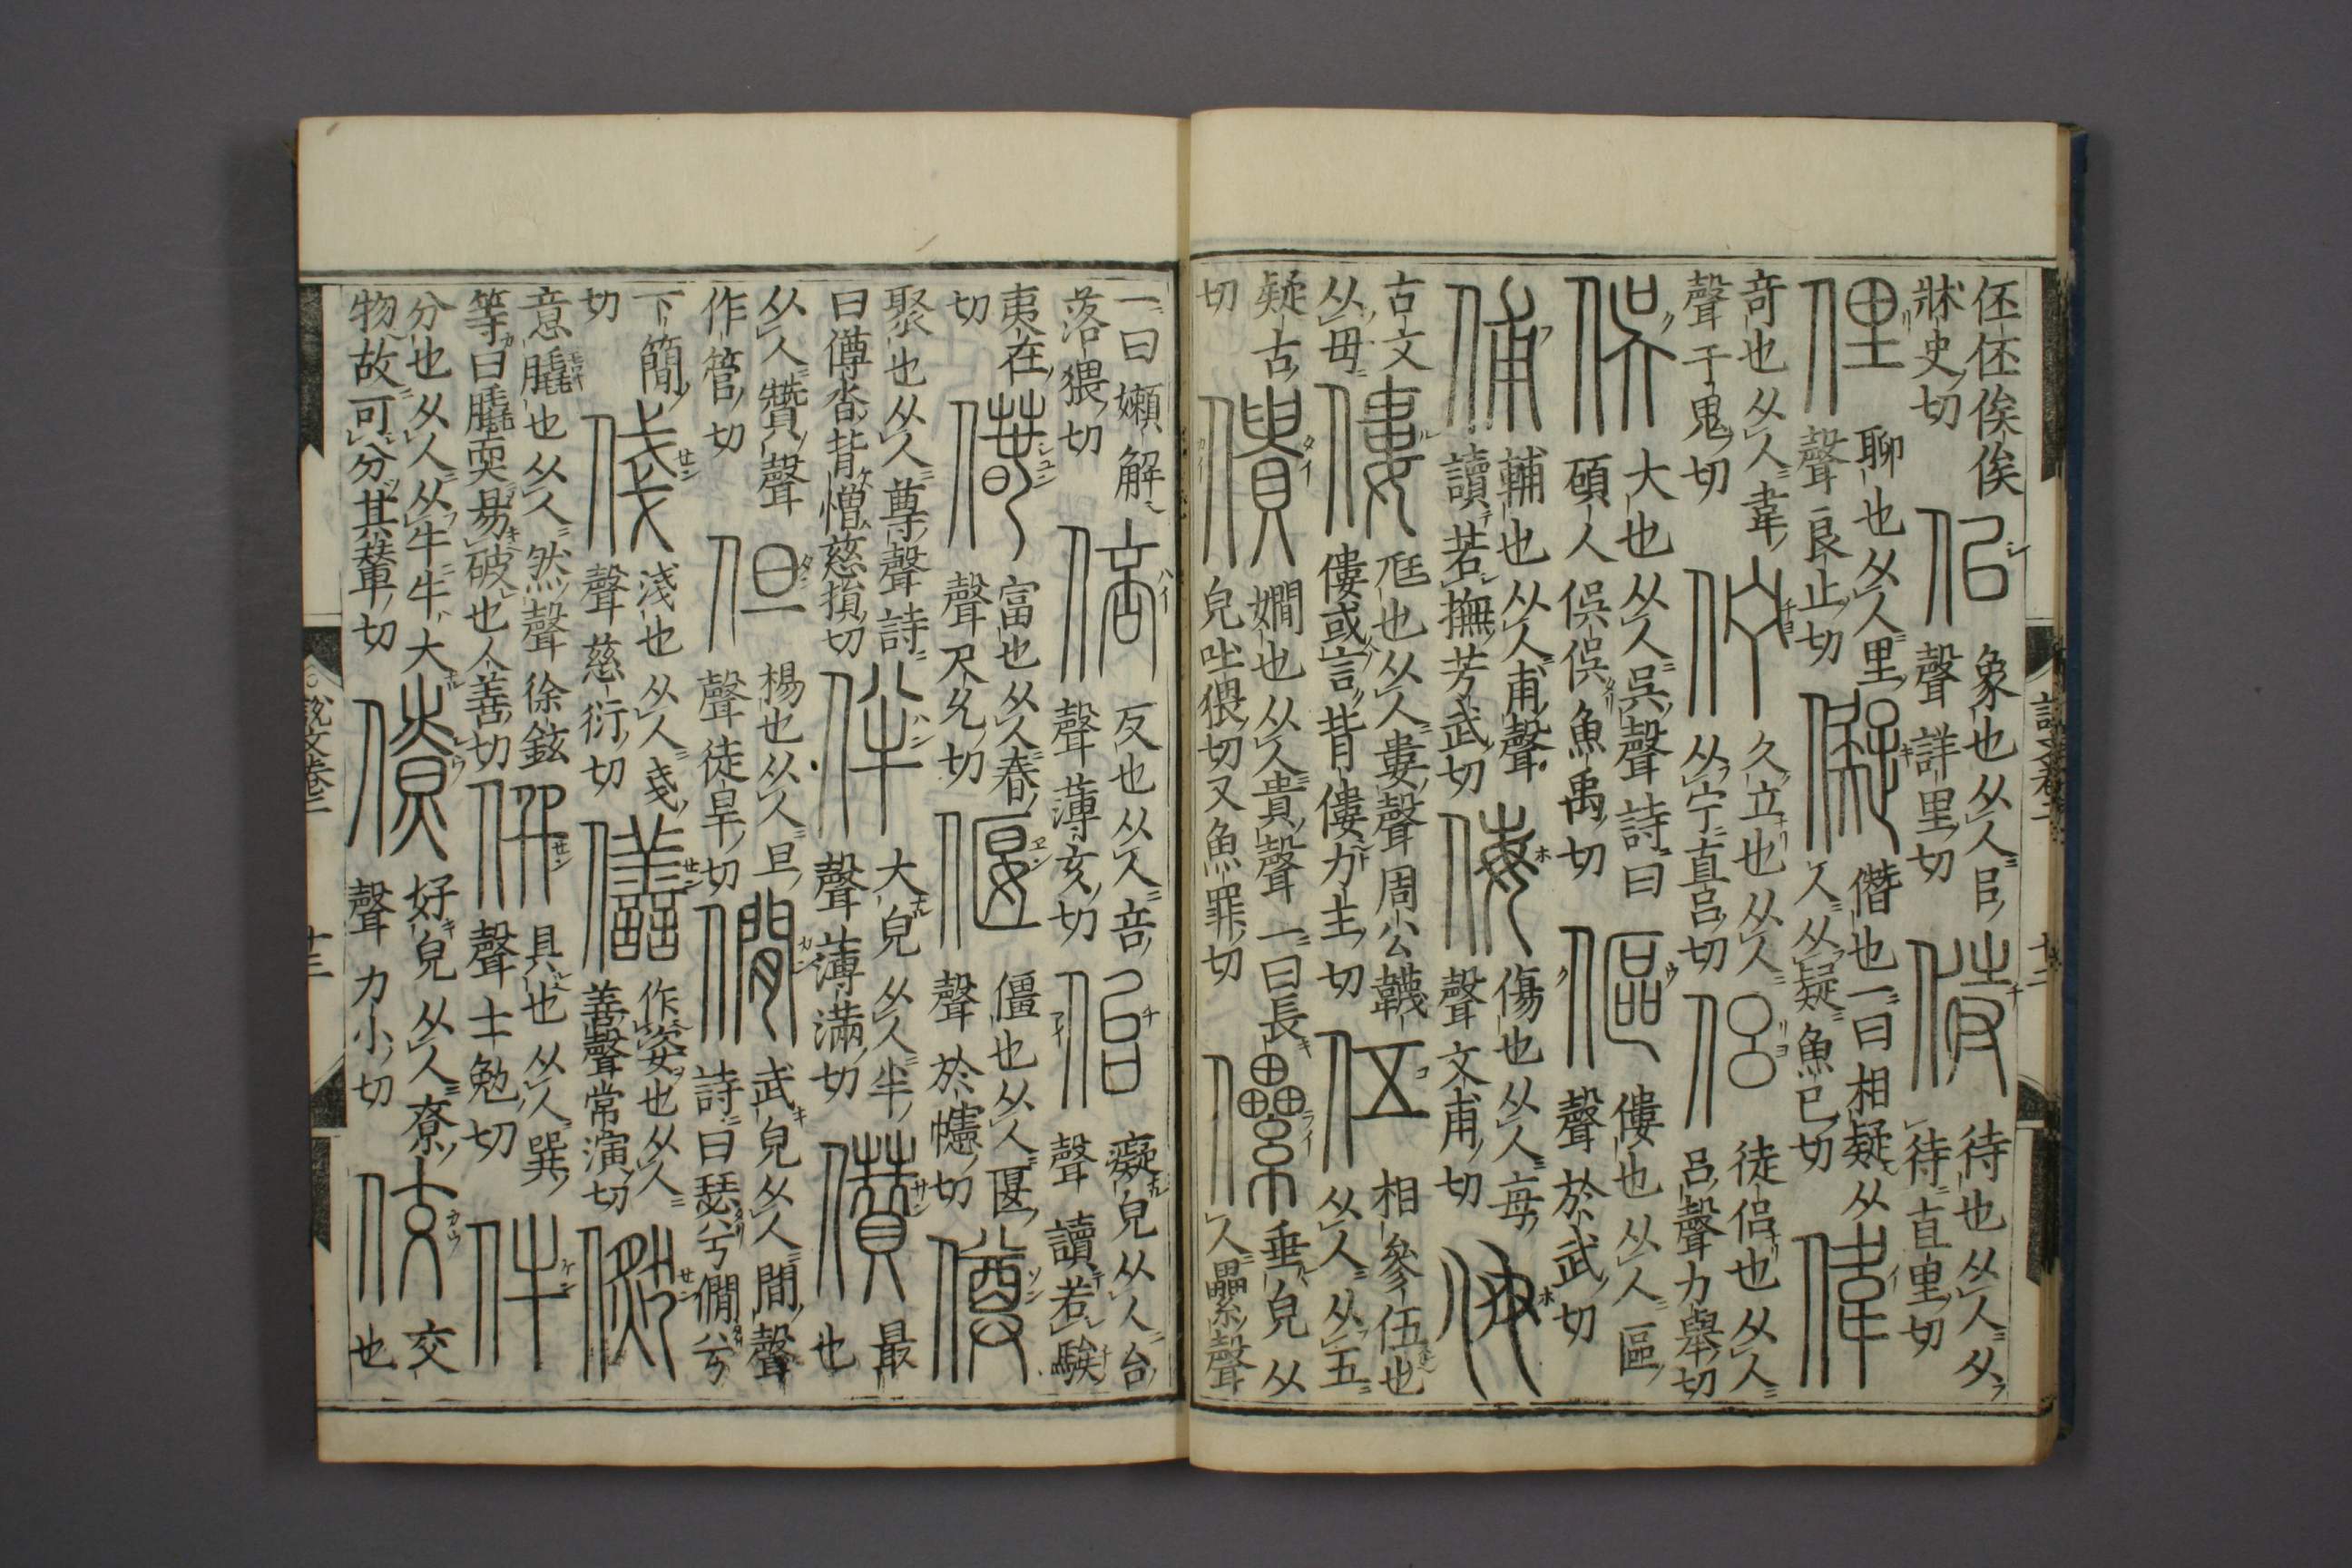 伾伾俟俟牀史切佀象也从人㠯聲詳里切偫待也从人从待直里切
俚聊也从人里聲良止切儗僭也一曰相疑从人从疑魚已切偉
奇也从人韋聲于鬼切佇久立也从人从宁直呂切侶徒侶也从人呂聲力舉切
俁大也从人吳聲詩曰碩人俁俁魚禹切傴僂也从人區聲於武切
俌輔也从人甫聲讀若撫芳武切侮傷也从人每聲文甫切㑄
古文从母僂尫也从人婁聲周公韈僂或言背僂力主切伍相參伍也从人从五
疑古切僓嫺也从人貴聲一曰長皃吐猥切又魚罪切儽垂皃从人纍聲
一曰嬾解落猥切倍反也从人咅聲薄亥切佁癡皃从人台聲讀若騃
夷在切偆富也从人春聲尺允切偃僵也从人匽聲於幰切僔
聚也从人尊聲詩曰僔沓背憎慈損切伴大皃从人半聲薄滿切儹最也
从人贊聲作管切但裼也从人旦聲徒旱切僩武皃从人間聲詩曰瑟兮僩兮
下簡切俴淺也从人戔聲慈衍切僐作姿也从人善聲常演切㒄
意膬也从人然聲徐鉉等曰膬耎易破也人善切僎具也从人巽聲士勉切件
分也从人从牛牛大物故可分其輦切僚好皃从人尞聲力小切佼交也
說文卷二
十三